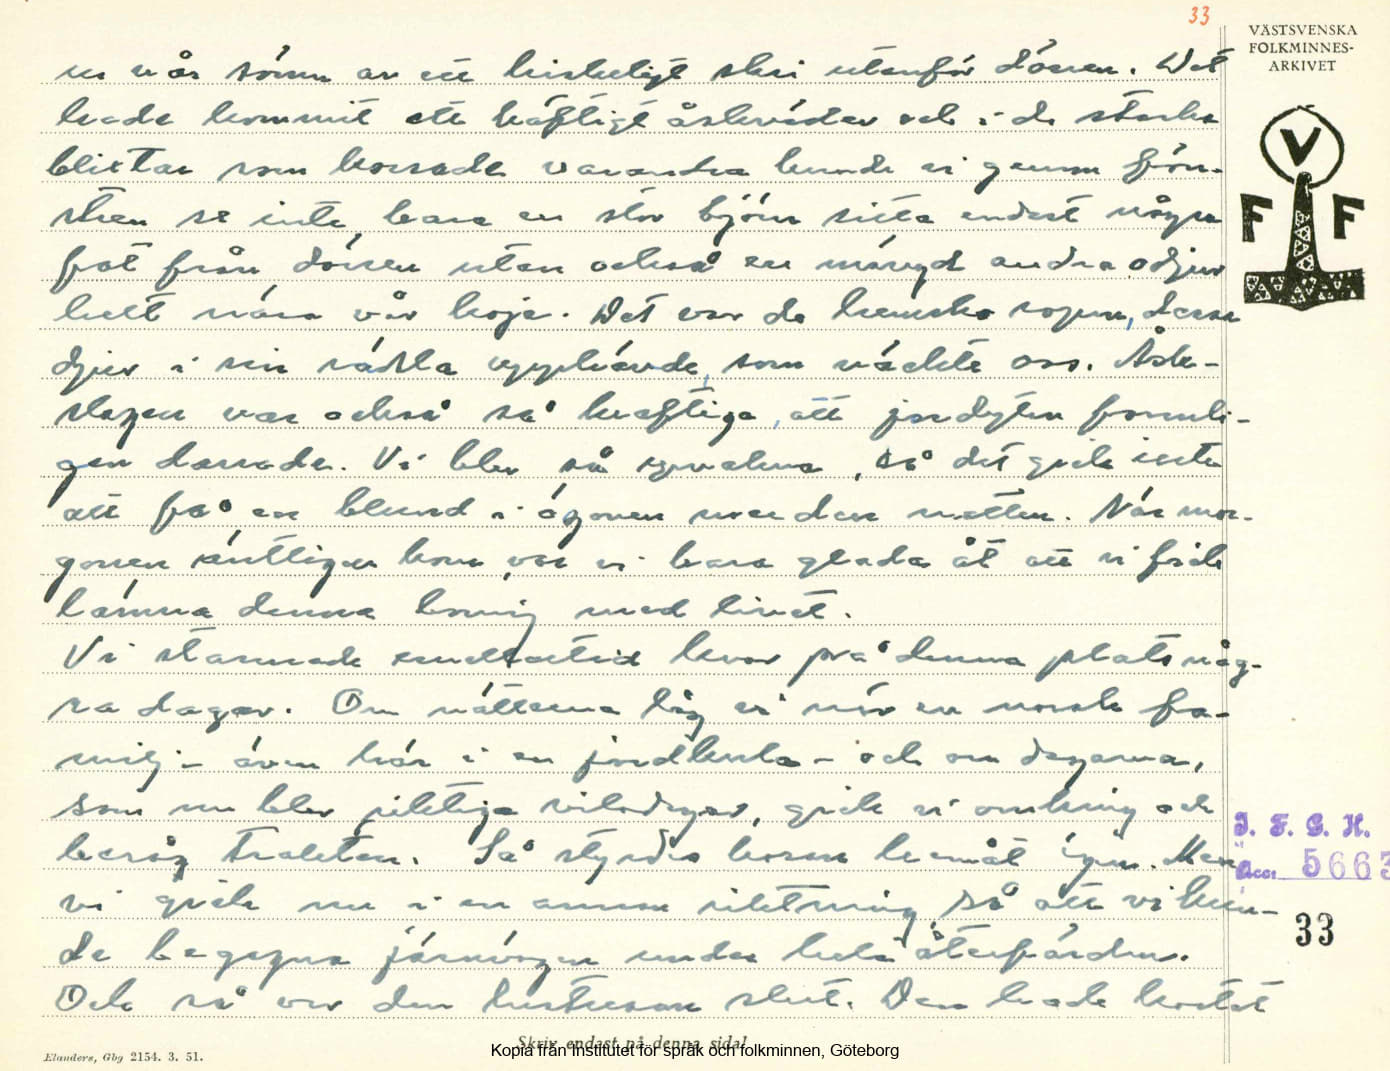 33
VÄSTSVENSKA
FOLKMINNES-
ARKIVET
ur vår sömn av ett hiskeligt skri utanför dörren. Det
hade kommit ett häftigt åskväder och i de starka
blixtar som korsade varandra kunde vi genom fön-
stren se inte bara en stor björn sitta endast några
fot från dörren utan också en mängd andra odjur
helt nära vår koja. Det var de hemska ropen, dessa
djur i sin rädsla upphävde, som väckte oss. Åsk-
slagen var också så kraftiga, att jordytan formli-
gen darrade. Vi blev så uppvakna, så det gick inte
att få en blund i ögonen mer den natten. När mor-
gonen äntligen kom, var vi bara glada åt att vi fick
lämna denna boning med livet.
Vi stannade emellertid kvar på denna plats någ-
ra dagar. Om nätterna låg vi inne hos en norsk fa-
milj - även här i en jordkula - och om dagarna,
som nu blev riktiga vilodagar, gick vi omkring och
besåg trakten. Så styrdes kosan hemåt igen. Men
vi gick nu i en annan riktning, så att vi kun-
de begagna järnvägen under hela återfärden.
Och så var den lustresan slut. Den hade kostat
V
F F
I. F. G. H.
Acc: 5663
33
Skriv endast på denna sida!
Kopia från Institutet för språk och folkminnen, Göteborg
Elanders, Gbg 2154. 3. 51.